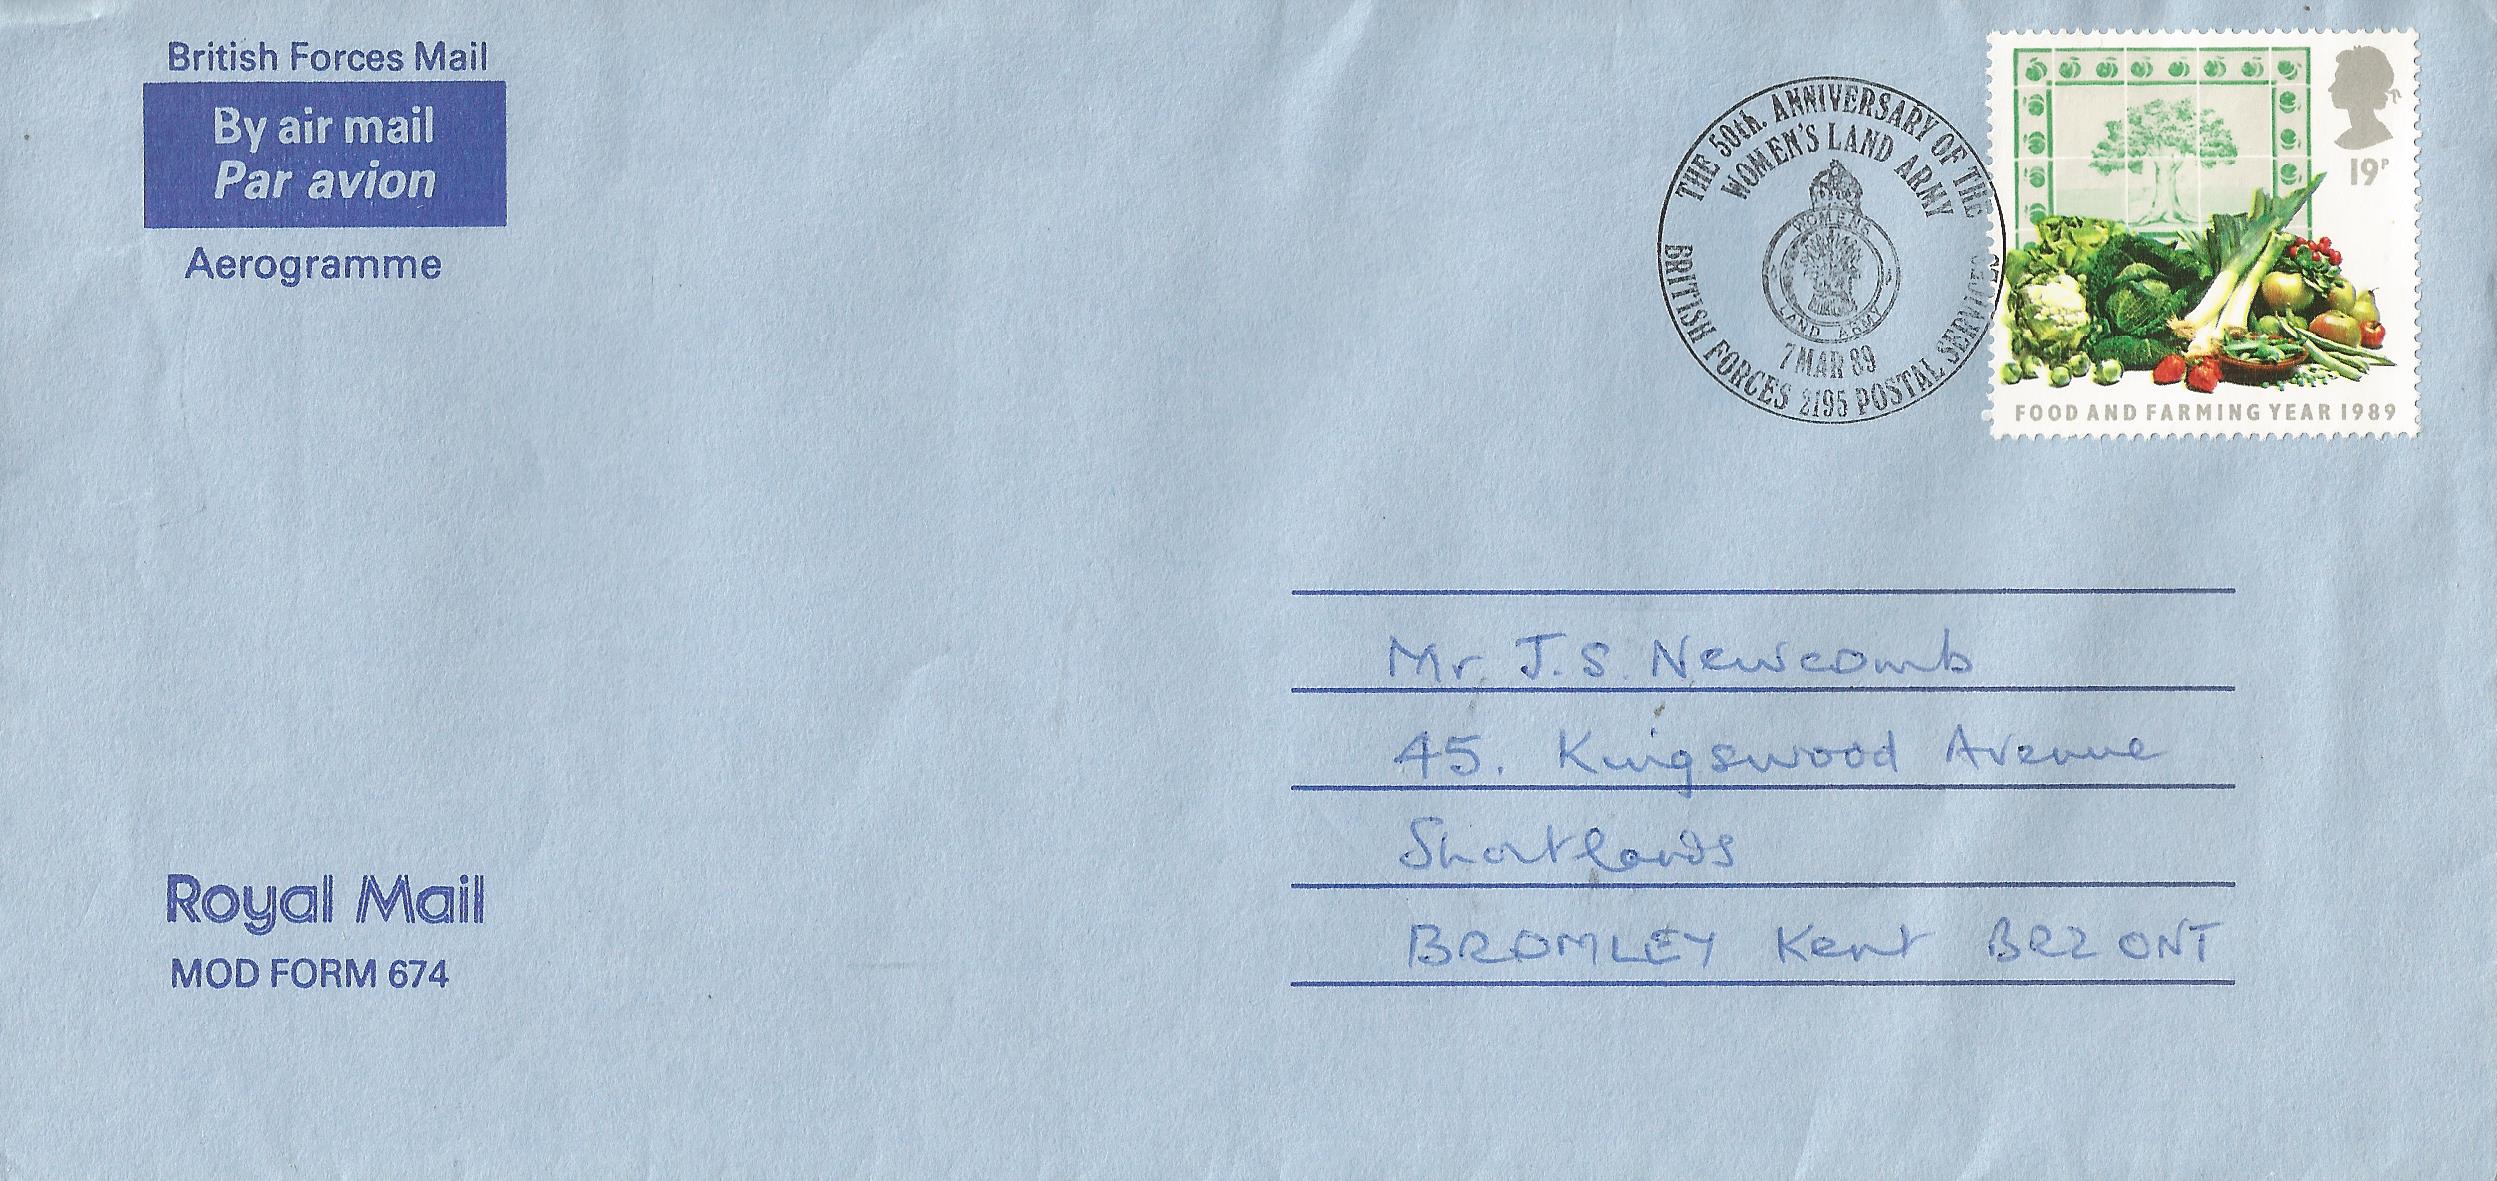 British Forces Mail
By air mail
Par avion
Aerogramme
THE 50th. ANNIVERSARY OF THE
WOMEN'S LAND ARMY
WOMENS
LAND ARMY
7 MAR 89
BRITISH FORCES 2195 POSTAL SERVICES
19P
FOOD AND FARMING YEAR 1989
Mr. J.S. Newcomb
45. Kingswood Avenue
Shortlands
BROMLEY Kent BR2 0NT
Royal Mail
MOD FORM 674